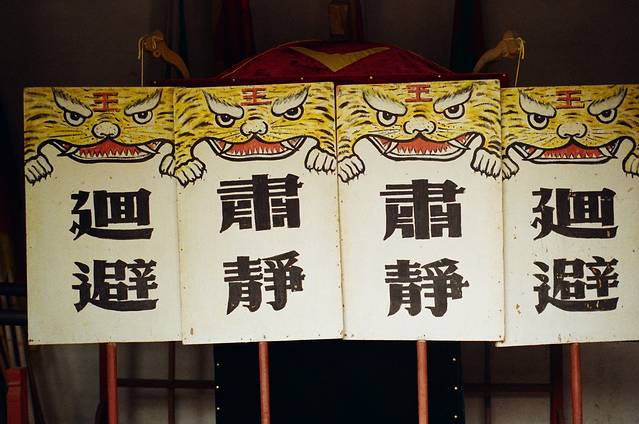 王
廻避
王
肅靜
王
肅靜
王
廻避